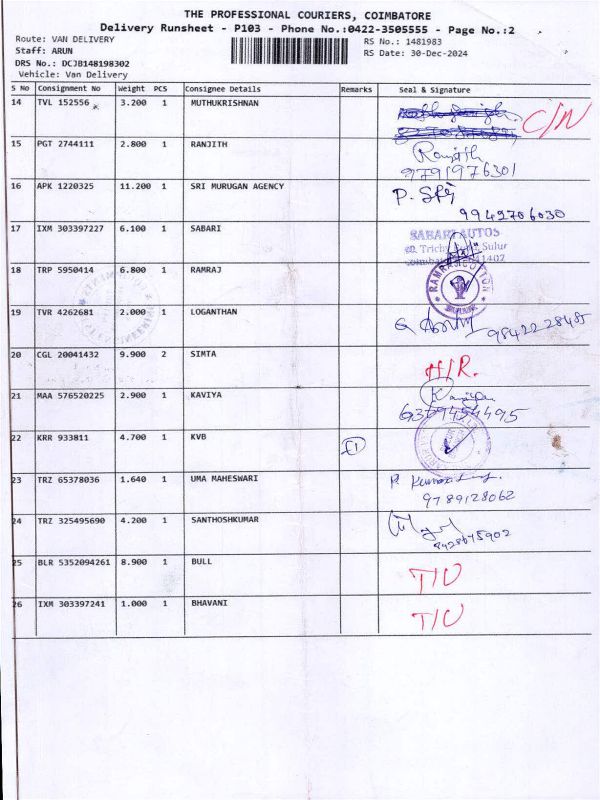 THE PROFESSIONAL COURIERS, COIMBATORE
Delivery Runsheet - P103 - Phone No.:0422-3505555 - Page No.:2
Route: VAN DELIVERY
Staff: ARUN
DRS No.: DCJB148198302
Vehicle: Van Delivery
RS No.: 1481983
RS Date: 30-Dec-2024
S No Consignment No Weight PCS Consignee Details Remarks Seal & Signature
14 TVL 152556 3.200 1 MUTHUKRISHNAN C/N
15 PGT 2744111 2.800 1 RANJITH Ranjith
9791976301
16 APK 1220325 11.200 1 SRI MURUGAN AGENCY
9942706030
17 IXM 303397227 6.100 1 SABARI SABARI AUTOS
Trichy Sulur
18 TRP 5950414 6.800 1 RAMRAJ RAMRAJ COTTON
19 TVR 4262681 2.000 1 LOGANTHAN
20 CGL 20041432 9.900 2 SIMTA H/R.
21 MAA 576520225 2.900 1 KAVIYA
22 KRR 933811 4.700 1 KVB
23 TRZ 65378036 1.640 1 UMA MAHESWARI
9789128062
24 TRZ 325495690 4.200 1 SANTHOSHKUMAR
25 BLR 5352094261 8.900 1 BULL T/U
26 IXM 303397241 1.000 1 BHAVANI T/U